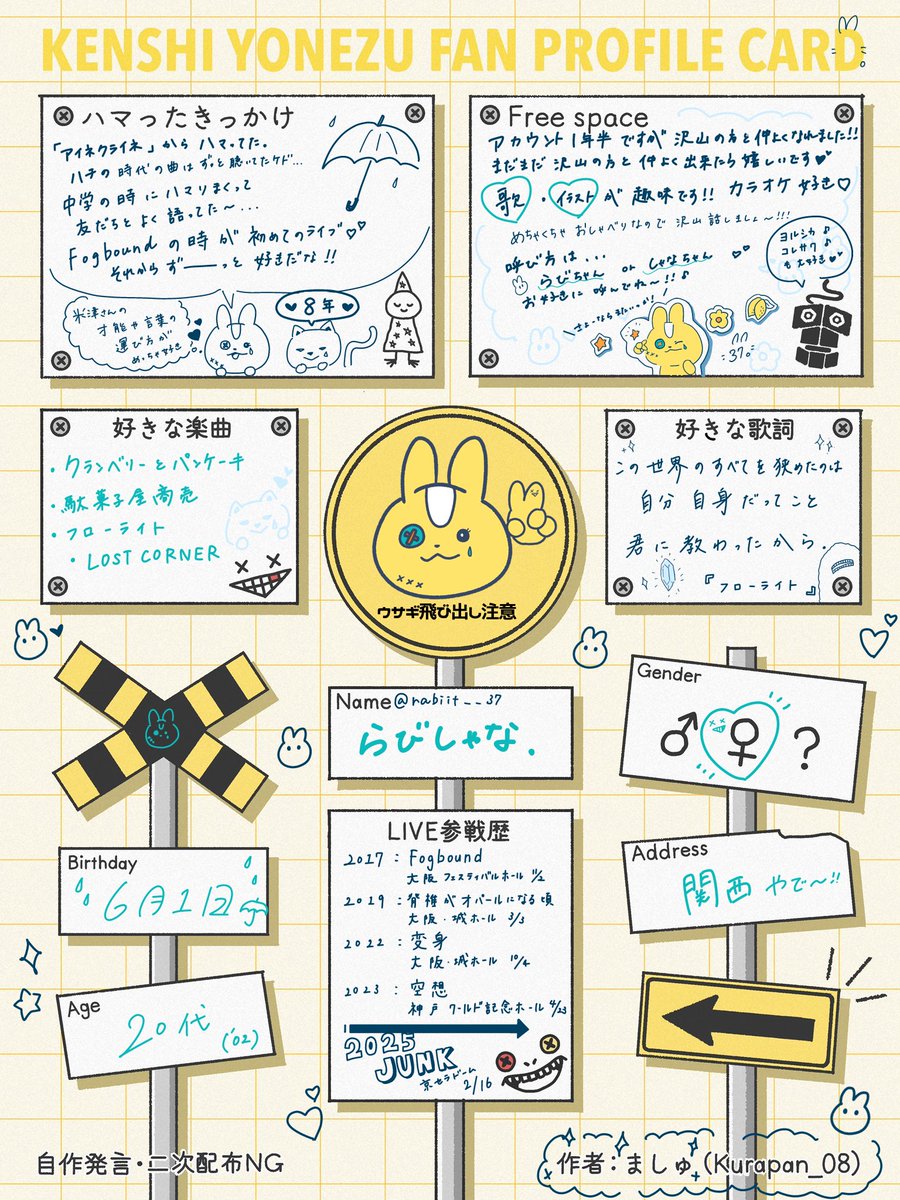 KENSHI YONEZU FAN PROFILE CARD
ハマったきっかけ
「アイネクライネ」から ハマってた。
ハチの時代の曲はずっと聴いてたケド...
中学の時にハマりまくって
友だちとよく語ってた〜...
Fogbound の時が初めてのライブ♡♡
それからずーーっと 好きだな!!
米津さんの
才能や言葉の
運び方が
めっちゃ好き
♥8年♥
Free space
アカウント1年半ですが沢山の方と仲よくなれました!!
まだまだ沢山の方と仲よく出来たら嬉しいです♥♥
歌・イラストが趣味です!! カラオケ好き♡
めちゃくちゃおしゃべりなので沢山話しましょ〜!!!
呼び方は...
らびちゃん or しゃなちゃん
お好きに呼んでね〜!!♪
ヨルシカ♪
コレサワ♪
も大好き♥
37。
好きな楽曲
・クランベリーとパンケーキ
・駄菓子屋商売
・フローライト
・LOST CORNER
ウサギ飛び出し注意
好きな歌詞
この世界のすべてを狭めたのは
自分自身だってこと
君に教わったから.
『フローライト』
Name @rabiit__37
らびしゃな.
Gender
♂ ♀ ?
LIVE参戦歴
2017 : Fogbound
大阪 フェスティバルホール 11/2
2019 : 脊椎がオパールになる頃
大阪・城ホール 3/3
2022 : 変身
大阪・城ホール 10/4
2023 : 空想
神戸 ワールド記念ホール 4/23
2025
JUNK
京セラドーム
2/16
Birthday
6月1日
Address
関西やで〜!!
Age
20代
('02)
自作発言・二次配布NG
作者：ましゅ (Kurapan_08)